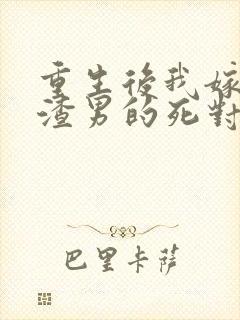 重生後我嫁
渣男的死對
巴里卡薩